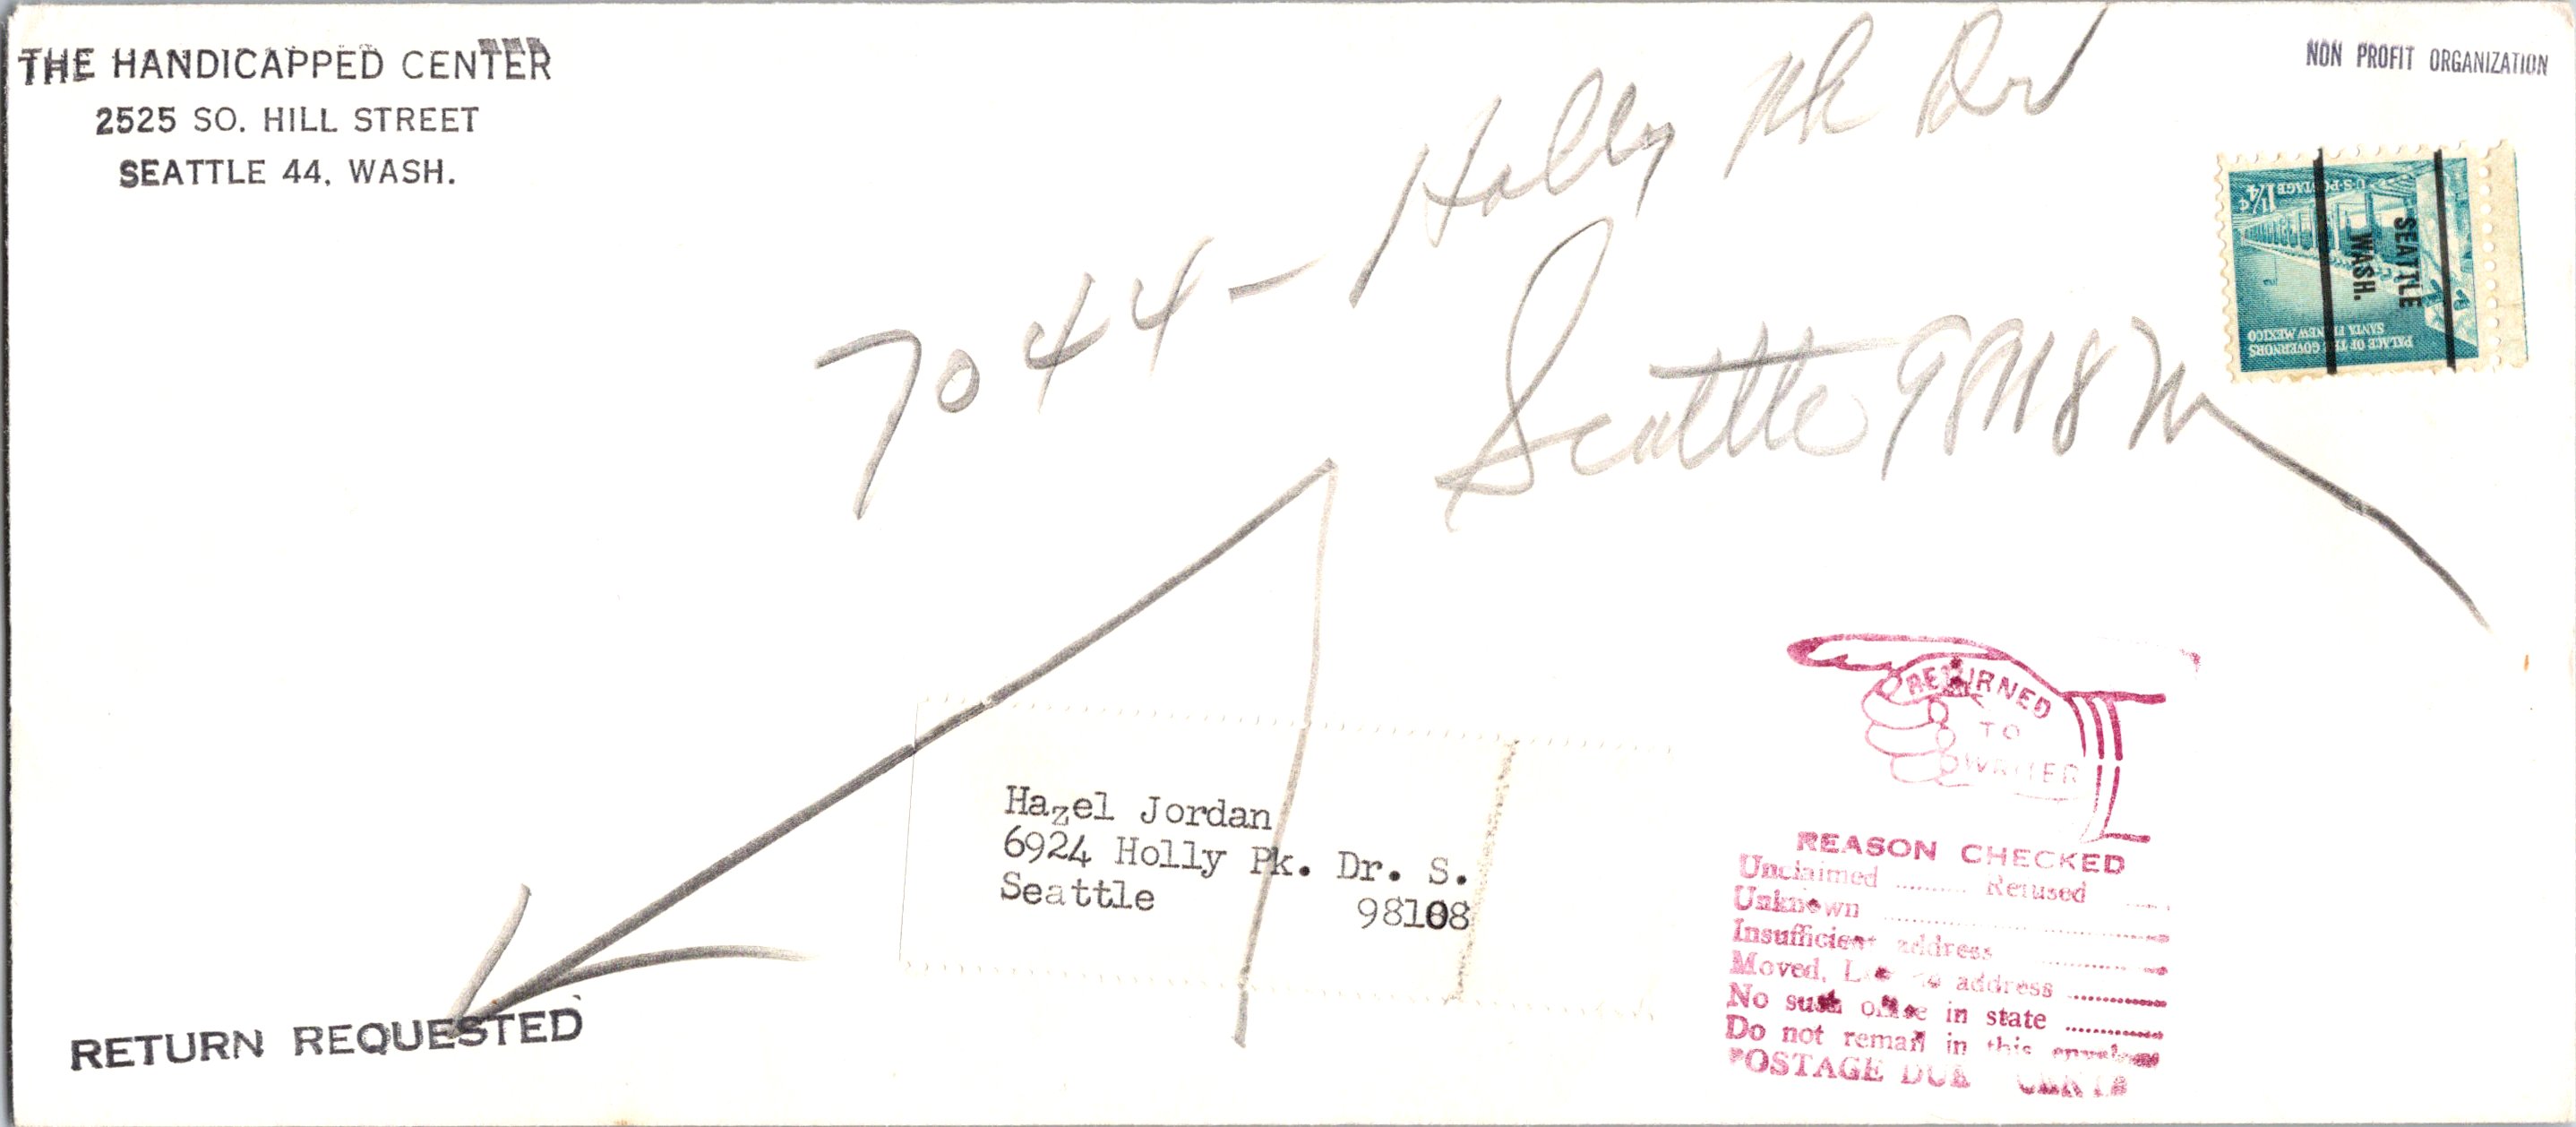 THE HANDICAPPED CENTER
2525 SO. HILL STREET
SEATTLE 44, WASH.
NON PROFIT ORGANIZATION
U·S·POSTAGE 1¼¢
SEATTLE
WASH.
PALACE OF THE GOVERNORS
SANTA FE, NEW MEXICO
7044 - Holly Pk Dr
Seattle 98118
Hazel Jordan
6924 Holly Pk. Dr. S.
Seattle 98108
RETURN REQUESTED
RETURNED
TO
WRITER
REASON CHECKED
Unclaimed .......... Refused .....
Unknown ..........
Insufficient address ..........
Moved, Left no address ..........
No such office in state ..........
Do not remail in this envelope
POSTAGE DUE CENTS